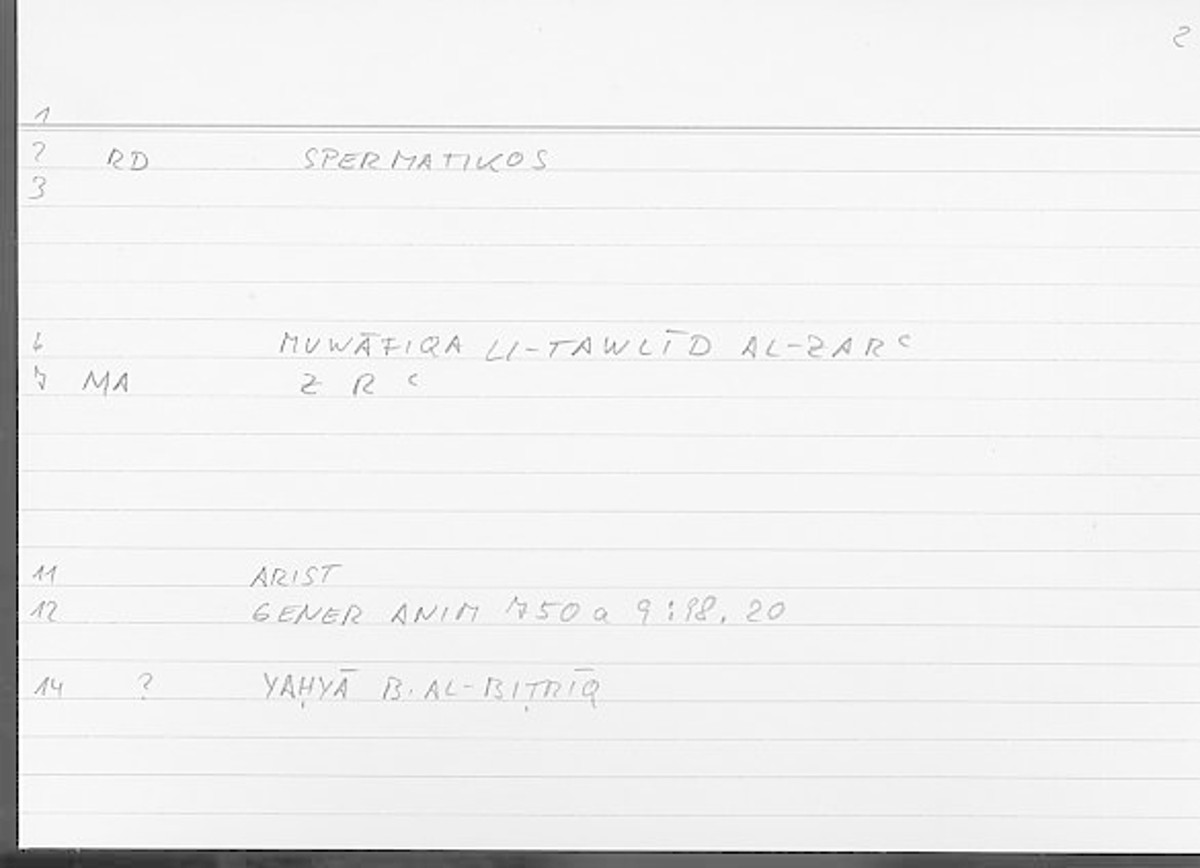 2
1
2 RD SPERMATIKOS
3
6 MUWĀFIQA LI-TAWLĪD AL-ZARᶜ
7 MA Z R ᶜ
11 ARIST
12 GENER ANIM 750 a 9 : 98, 20
14 ? YAḤYĀ B. AL-BIṬRĪQ